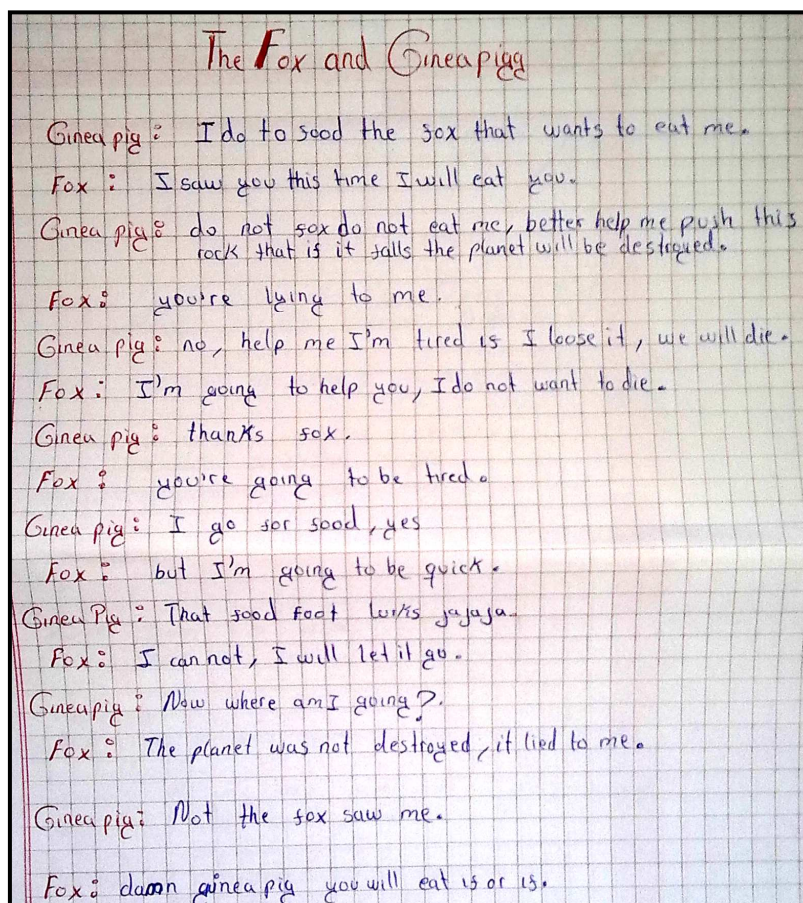 The Fox and Gineapigg
Ginea pig: I do to sood the sox that wants to eat me.
Fox: I saw you this time I will eat you.
Ginea pig: do not sox do not eat me, better help me push this
rock that if it salls the planet will be destroyed.
Fox: you're lying to me.
Ginea pig: no, help me I'm tired is I loose it, we will die.
Fox: I'm going to help you, I do not want to die.
Ginea pig: thanks sox.
Fox: you're going to be tired.
Ginea pig: I go sor sood, yes
Fox: but I'm going to be quick.
Ginea Pig: That sood foot jajaja
Fox: I can not, I will let it go.
Gineapig: Now where am I going?.
Fox: The planet was not destroyed, it lied to me.
Ginea pig: Not the fox saw me.
Fox: damn guinea pig you will eat is or is.